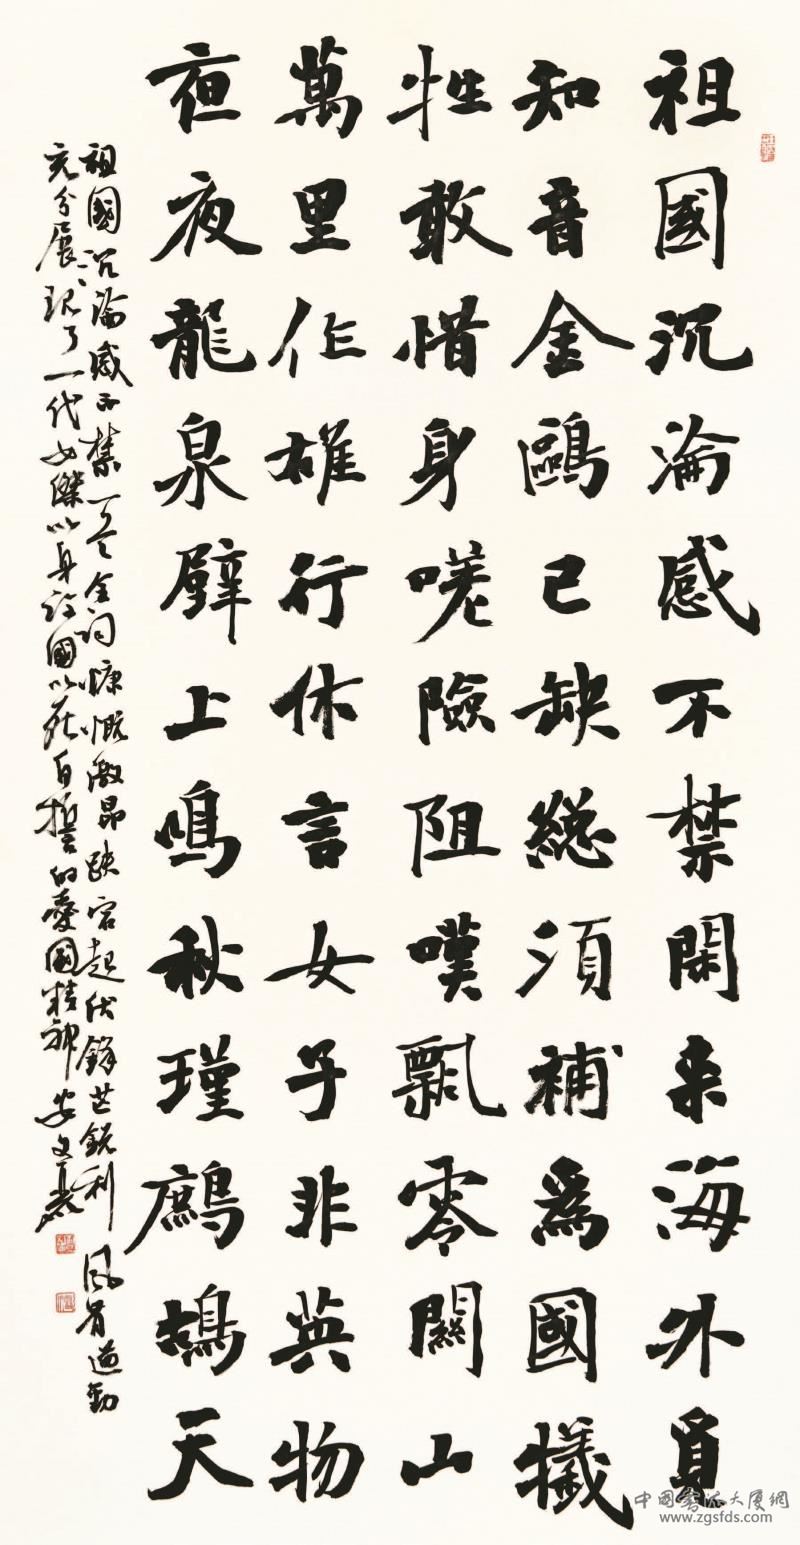 祖國沉淪感不禁閑来海外覓
知音金鷗已缺総須補爲國犧
牲敢惜身嗟險阻嘆飄零關山
萬里作雄行休言女子非英物
夜夜龍泉壁上鳴秋瑾鷓鴣天
祖國沉淪感不禁一全詞慷慨激昂跌宕起伏鋒芒銳利風骨遒勁
充分展現了一代女傑以身許國以死自誓的愛國精神安文麗
中國書法大厦網
www.zgsfds.com